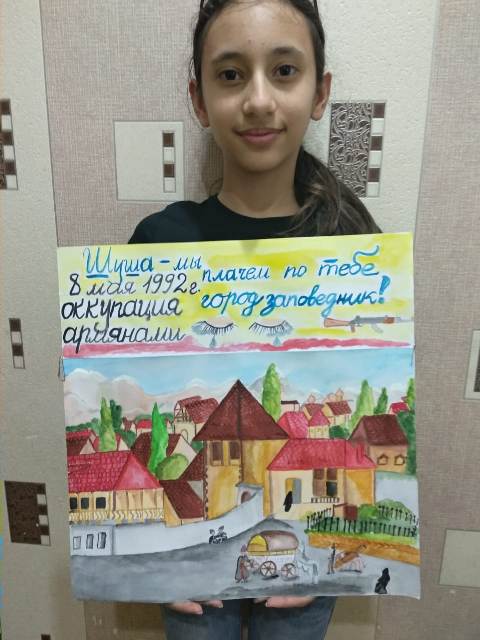 Шуша - мы плачем по тебе
8 мая 1992 г. город заповедник!
оккупация
армянами